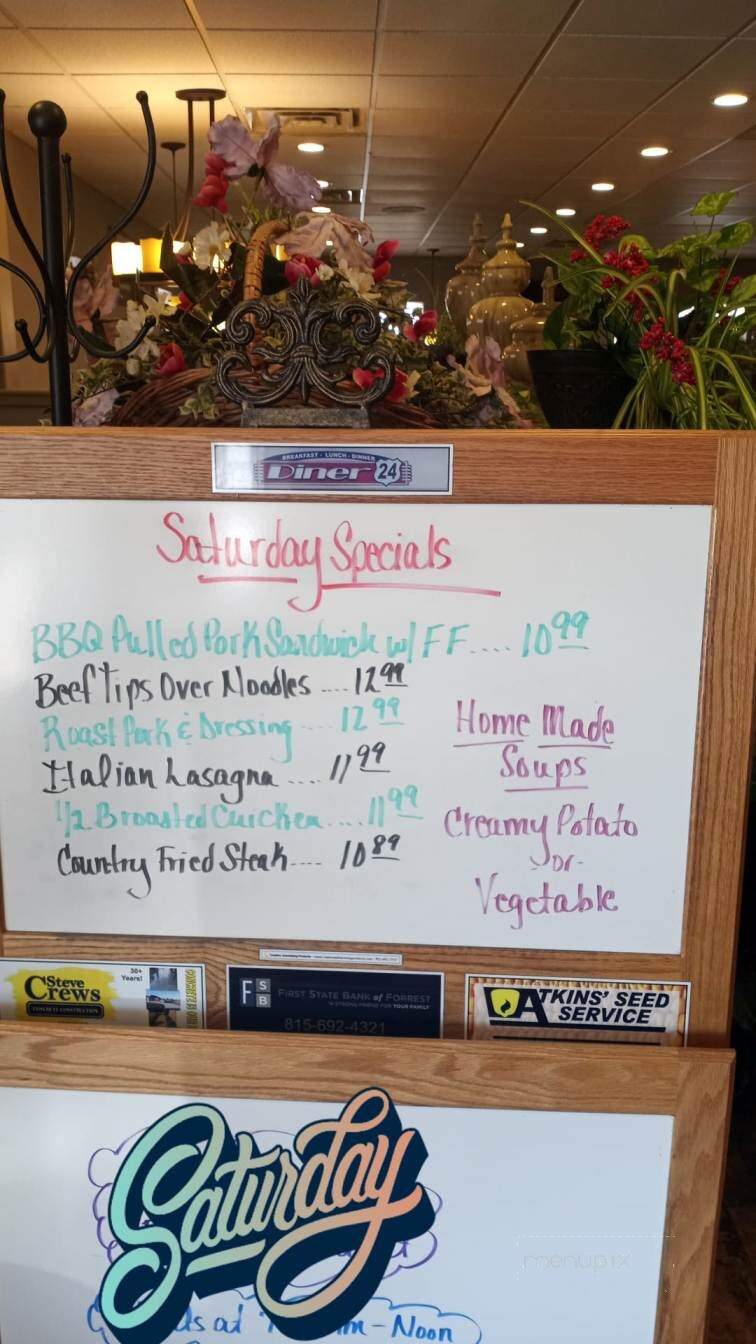 BREAKFAST - LUNCH - DINNER
Diner 24
Saturday Specials
BBQ Pulled Pork Sandwich w/ FF.... 10 99
Beef Tips Over Noodles .... 12 99
Roast Pork & Dressing .... 12 99
Italian Lasagna .... 11 99
1/2 Broasted Chicken .... 11 99
Country Fried Steak .... 10 89
Home Made
Soups
Creamy Potato
-or-
Vegetable
Steve
Crews
CONCRETE CONSTRUCTION
30+
Years!
FSB
FIRST STATE BANK of FORREST
A STRONG FRIEND FOR YOUR FAMILY
815-692-4321
ATKINS' SEED
SERVICE
Saturday
at
- Noon
menupix